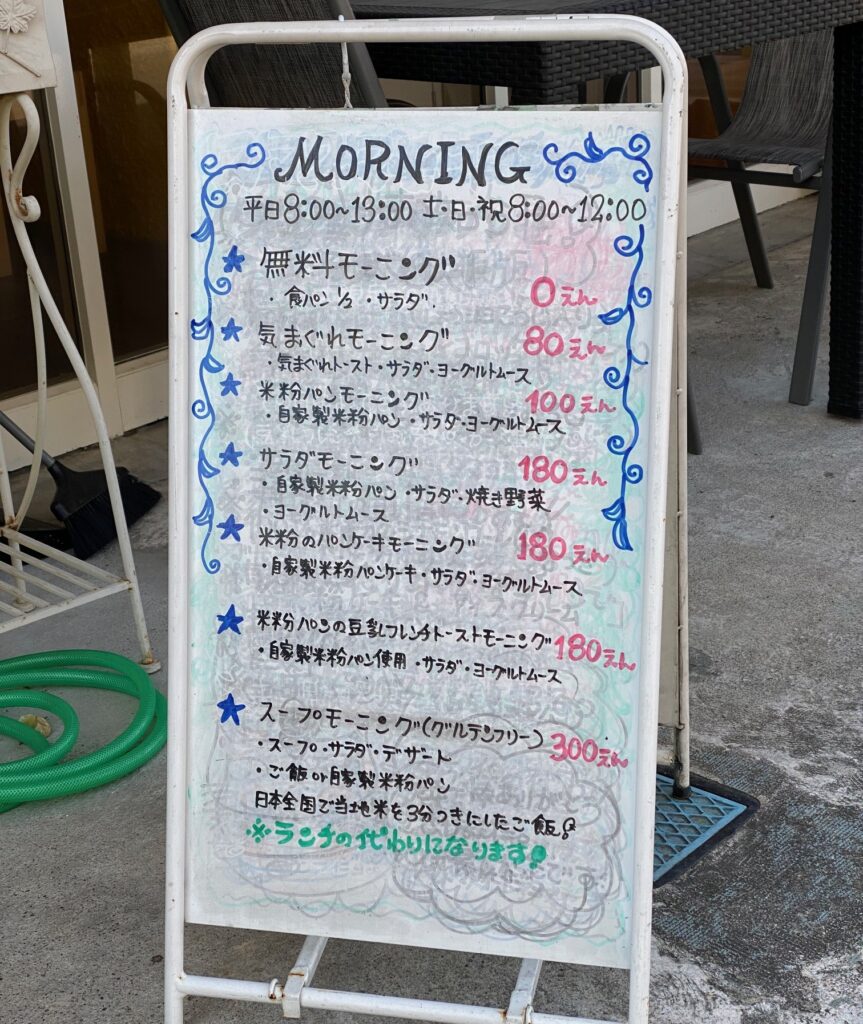 MORNING
平日8:00~13:00 土・日・祝8:00~12:00
無料モーニング 0えん
・食パン1/2 ・サラダ
気まぐれモーニング 80えん
・気まぐれトースト・サラダ・ヨーグルトムース
米粉パンモーニング 100えん
・自家製米粉パン・サラダ・ヨーグルトムース
サラダモーニング 180えん
・自家製米粉パン・サラダ・焼き野菜
・ヨーグルトムース
米粉のパンケーキモーニング 180えん
・自家製米粉パンケーキ・サラダ・ヨーグルトムース
米粉パンの豆乳フレンチトーストモーニング 180えん
・自家製米粉パン使用・サラダ・ヨーグルトムース
スープモーニング(グルテンフリー) 300えん
・スープ・サラダ・デザート
・ご飯or自家製米粉パン
日本全国で当地米を3分つきにしたご飯!
※ランチの代わりになります!